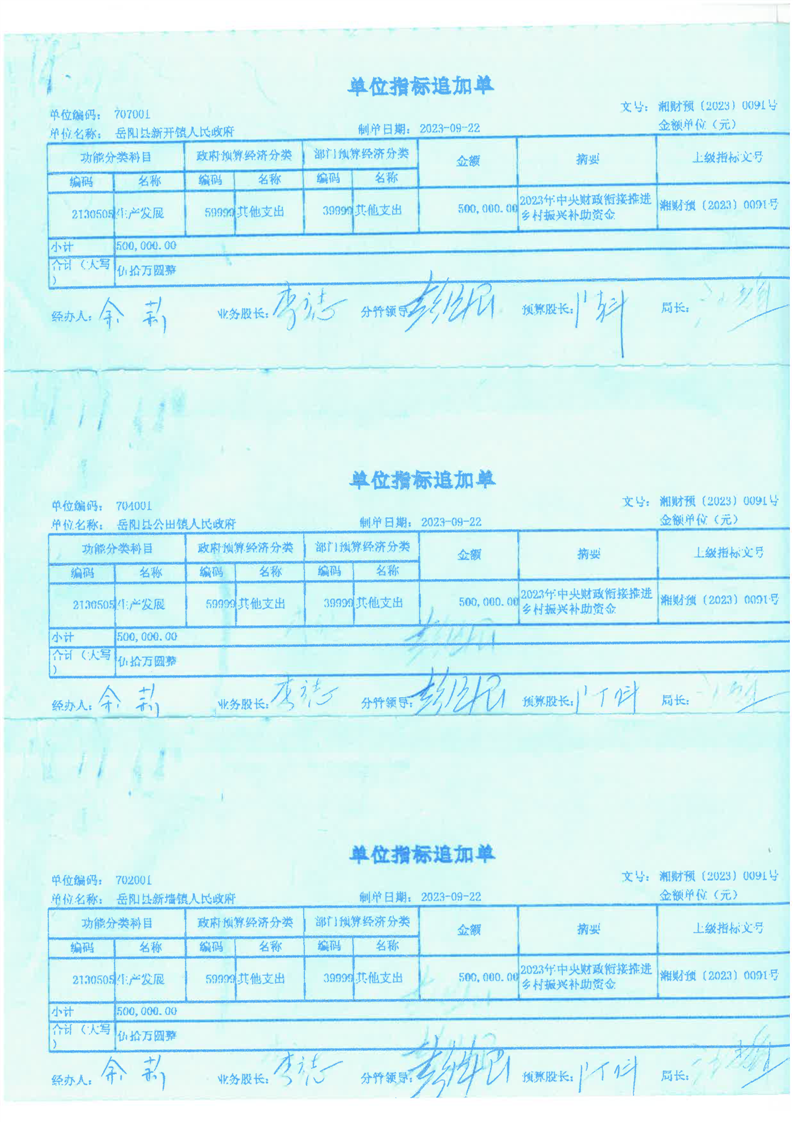 单位指标追加单
单位编码： 707001 文号： 湘财预〔2023〕0091号
单位名称： 岳阳县新开镇人民政府 制单日期： 2023-09-22 金额单位（元）
功能分类科目 政府预算经济分类 部门预算经济分类 金额 摘要 上级指标文号
编码 名称 编码 名称 编码 名称
2130505 生产发展 59999 其他支出 39999 其他支出 500,000.00 2023年中央财政衔接推进乡村振兴补助资金 湘财预〔2023〕0091号
小计 500,000.00
合计（大写） 伍拾万圆整
经办人： 余莉 业务股长： 李志 分管领导： 预算股长： 局长：
单位指标追加单
单位编码： 704001 文号： 湘财预〔2023〕0091号
单位名称： 岳阳县公田镇人民政府 制单日期： 2023-09-22 金额单位（元）
功能分类科目 政府预算经济分类 部门预算经济分类 金额 摘要 上级指标文号
编码 名称 编码 名称 编码 名称
2130505 生产发展 59999 其他支出 39999 其他支出 500,000.00 2023年中央财政衔接推进乡村振兴补助资金 湘财预〔2023〕0091号
小计 500,000.00
合计（大写） 伍拾万圆整
经办人： 余莉 业务股长： 李志 分管领导： 预算股长： 局长：
单位指标追加单
单位编码： 702001 文号： 湘财预〔2023〕0091号
单位名称： 岳阳县新墙镇人民政府 制单日期： 2023-09-22 金额单位（元）
功能分类科目 政府预算经济分类 部门预算经济分类 金额 摘要 上级指标文号
编码 名称 编码 名称 编码 名称
2130505 生产发展 59999 其他支出 39999 其他支出 500,000.00 2023年中央财政衔接推进乡村振兴补助资金 湘财预〔2023〕0091号
小计 500,000.00
合计（大写） 伍拾万圆整
经办人： 余莉 业务股长： 李志 分管领导： 预算股长： 局长：